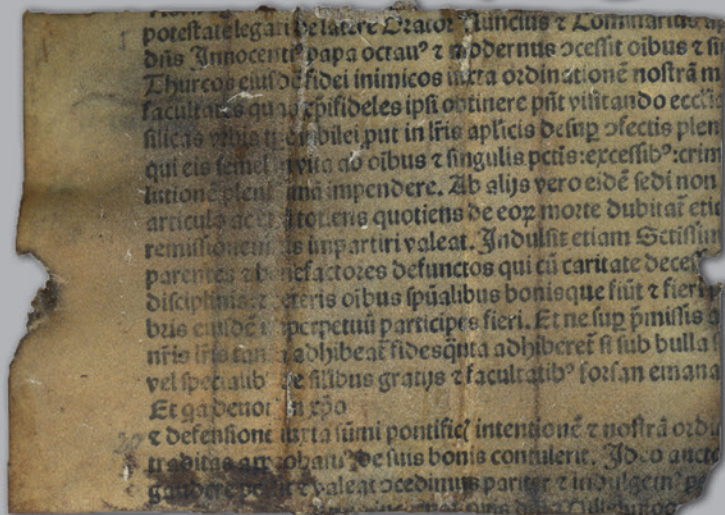 potestate legati de latere Orator Nuncius ⁊ Commissarius
dñs Innocentiꝰ papa octauꝰ ⁊ modernus ↄcessit oibus ⁊ si
Thurcos eiusdē fidei inimicos iuxta ordinationē nostrā m
facultates quas xp̄ifideles ipsi obtinere pn̄t visitando eccl̄ia
silicas vrbis iubilei put in lr̄is apl̄icis desup ↄfectis plen
qui eis semel in vita ab oibus ⁊ singulis pctis: excessibꝰ: crim
lutionē plenissimā impendere. Ab alijs vero eidē sedi non
articulo totiens quotiens de eoꝝ morte dubitat̄ etiā
remissionem impartiri valeat. Indulsit etiam Sctissim
parentes ⁊ benefactores defunctos qui cū caritate decess
disciplinis: ⁊ ceteris oibus spūalibus bonisque fiūt ⁊ fieri
bris eiusdē inperpetuū participes fieri. Et ne sup p̄missis
nr̄is lr̄is tanta adhibeat̄ fides q̄nta adhiberet̄ si sub bulla
vel specialibꝰ de silibus gratijs ⁊ facultatibꝰ forsan emana
Et qa deuot in xp̄o
⁊ defensione iuxta sūmi pontificꝭ intentionē ⁊ nostrā ordi
traditas de suis bonis contulerit. Ideo aucto
gaudere possit ⁊ valeat ↄcedimus pariter ⁊ indulgemꝰ